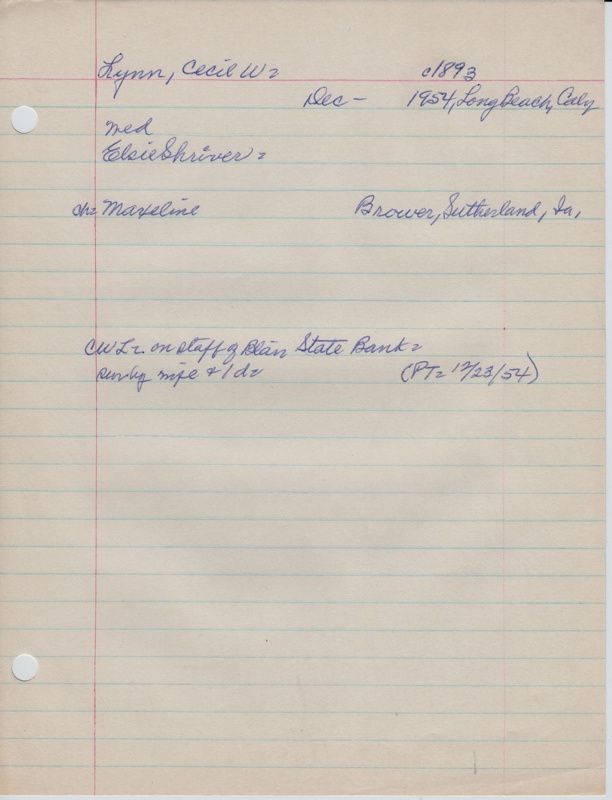 Lynn, Cecil W= c1893
Dec - 1954, Long Beach, Calif
med
Elsie Shriver=
ch= Maxeline Brower, Sutherland, Ia,
CWL= on staff of Blair State Bank=
surv by wife & 1 d= (PT= 12/23/54)